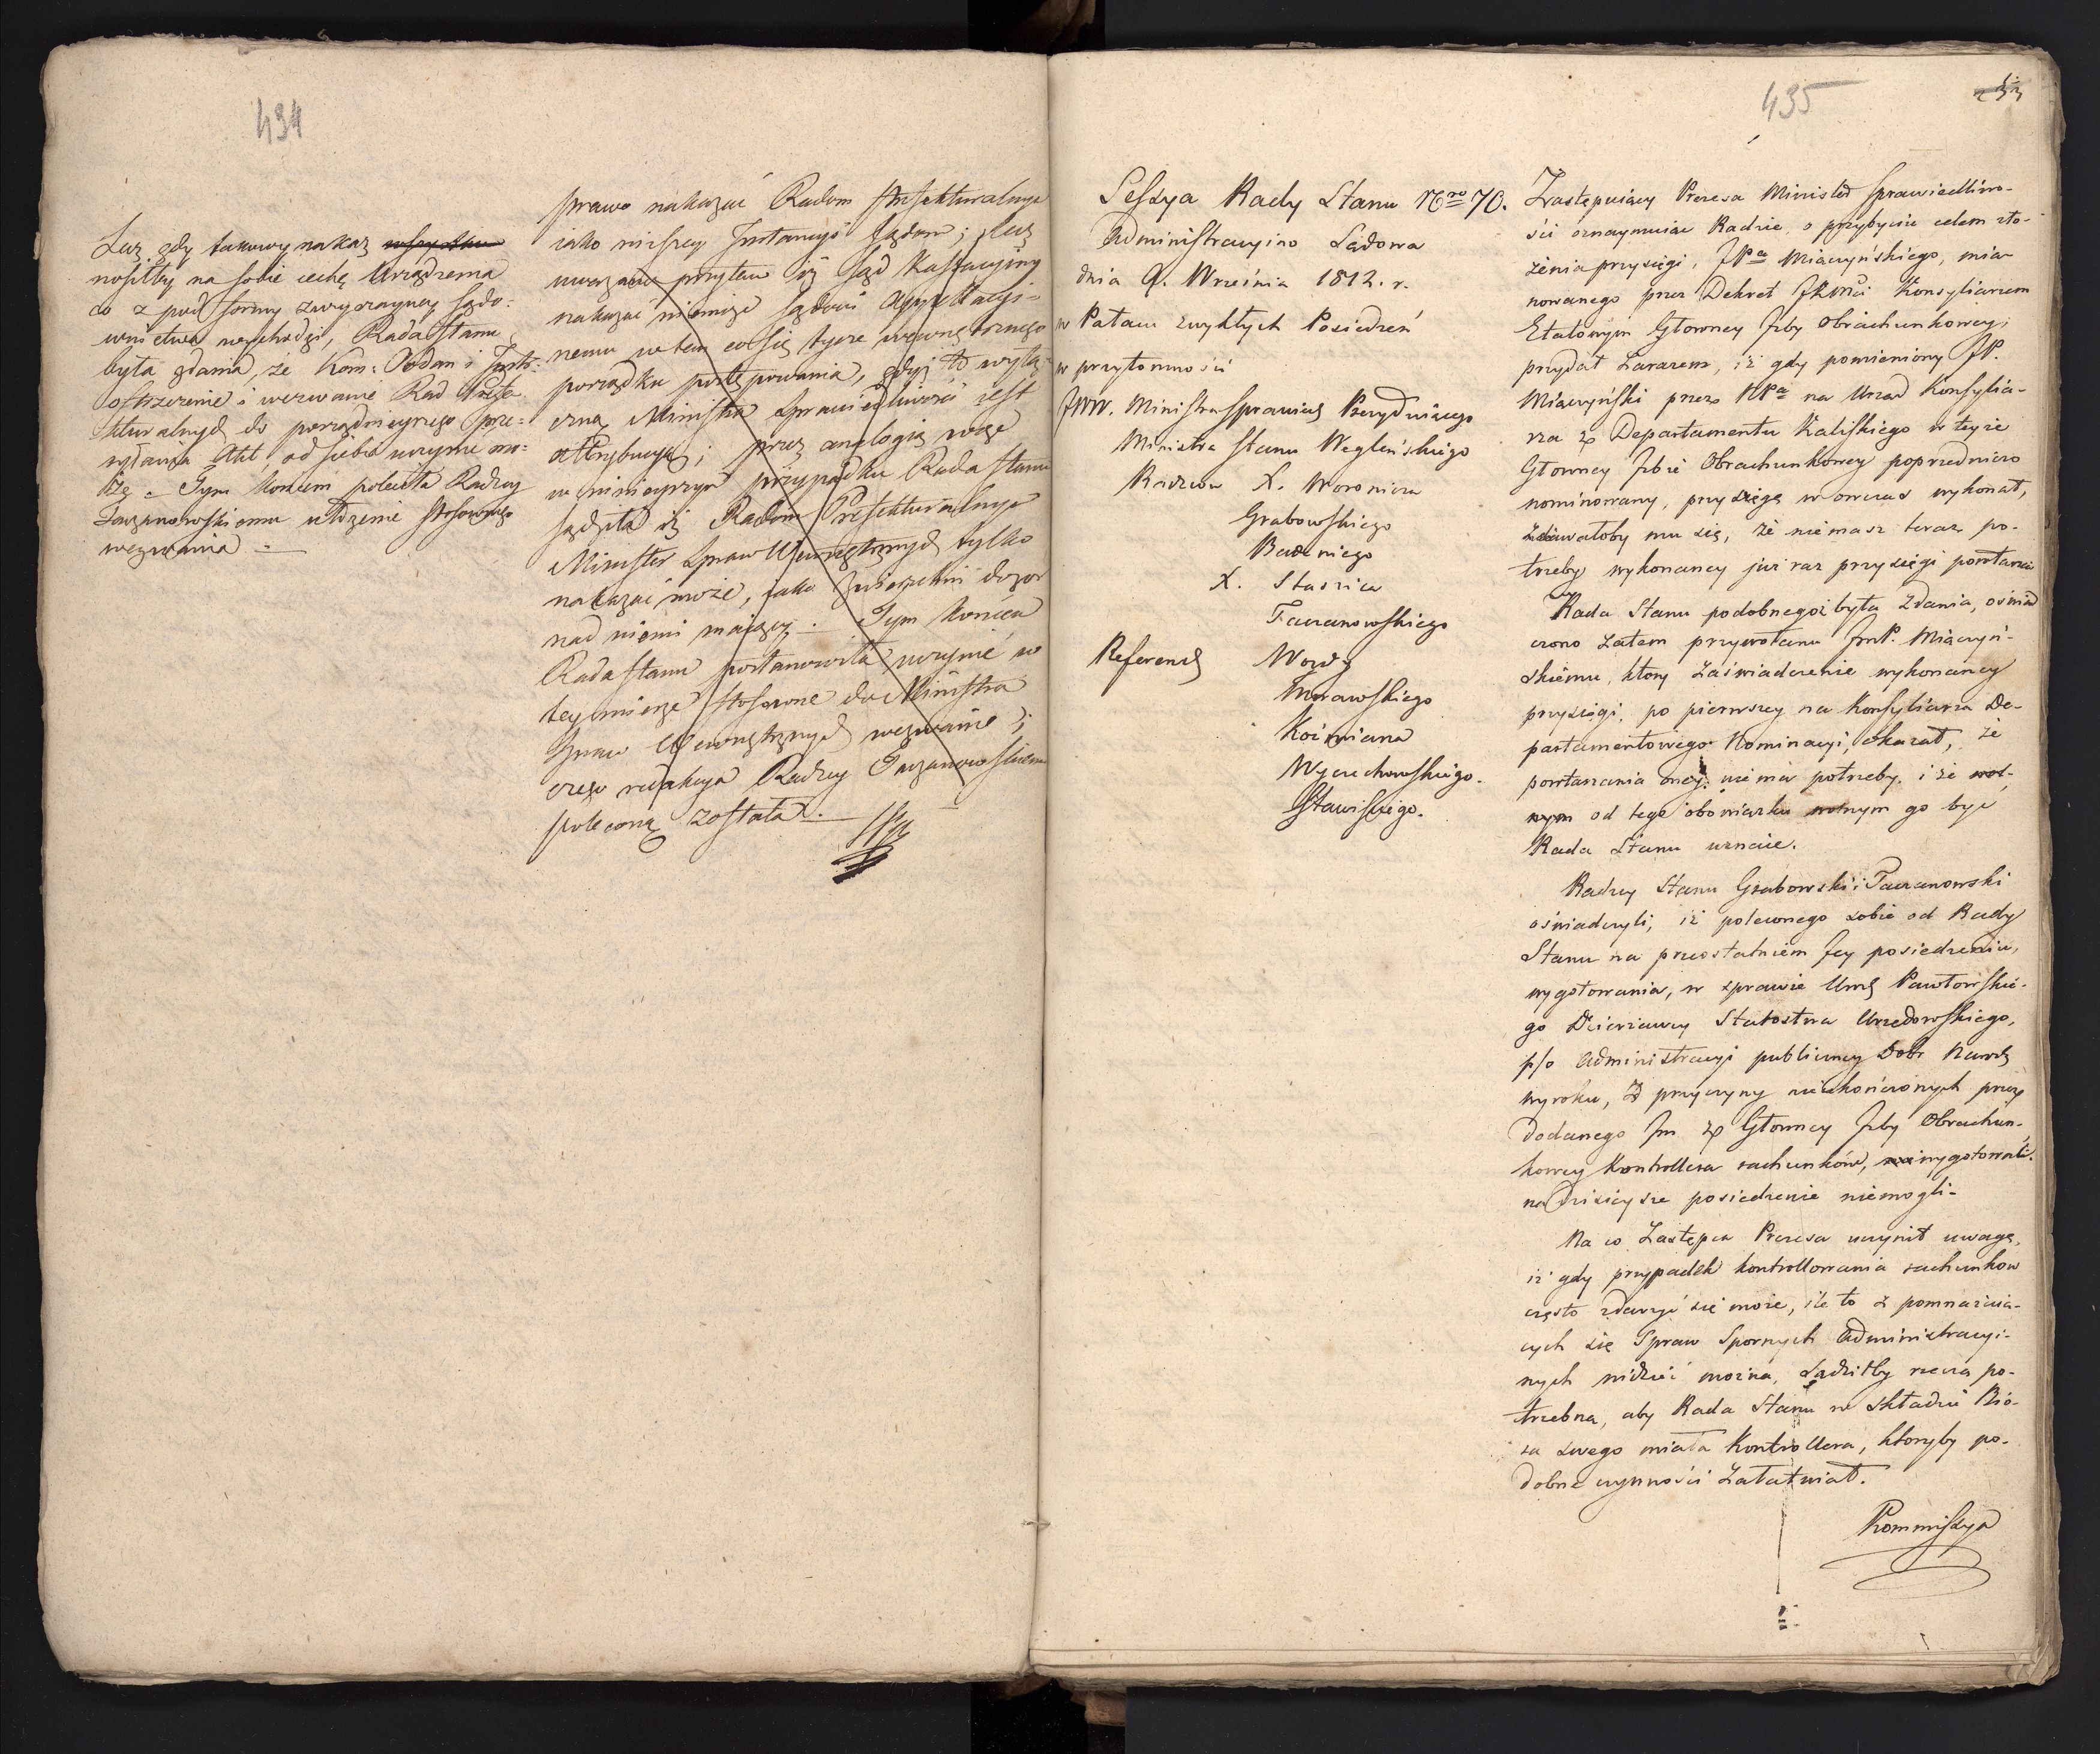 434
Lecz gdy takowy nakaz
nosiłby na sobie cechę Urządzenia
co z pod formy zwyczayney sądo:
wnictwa wychodzi, Rada Stanu
była zdania, że Kom: Podań i Instr:
ostrzeżenie i wezwanie Rad Prefe
kturalnych do porządnieyszego prze:
syłania Akt, od siebie uczynić mo:
że. Tym końcem poleciła Radzcy
Tarzanowskiemu ułożenie stosownego
wezwania
prawo nakazać Radom Prefekturalnym
iako niższey Instancyi Sądom; lecz
uważano przytem iż Sąd Kassacyiny
nakazać niemoże Sądowi Appellacyi-
nemu w tem co się tycze wewnętrznego
porządku postępowania, gdyż to wyłą-
czną Ministra Sprawiedliwości iest
attrybucyą; przez analogią więc
w ninieyszym przypadku Rada Stanu
sądziła iż Radom Prefekturalnym
Minister Spraw Wewnętrznych tylko
nakazać może, iako zwierzchni dozor
nad niemi maiący. Tym końcem
Rada Stanu postanowiła uczynić w
tey mierze stosowne do Ministra
Spraw Wewnętrznych wezwanie;
czego redakcya Radzcy Tarzanowskiemu
poleconą została.
435
Sessya Rady Stanu Nro 70.
Administracyino Sądowa
dnia 9. Września 1812. r.
w Pałacu zwykłych Posiedzeń
w przytomności
JWW. Ministra Sprawied Prezyduiącego
Ministra Stanu Węgleńskiego
Radzców X. Woronicza
Grabowskiego
Badeniego
X. Staszica
Tarzanowskiego
Referend Wozdy
Morawskiego
Koźmiana
Wyczechowskiego.
Stawiskiego.
Zastępuiący Prezesa Minister Sprawiedliwo-
ści oznaymuiąc Radzie, o przybyciu celem zło-
żenia przysięgi, JPa Miączyńskiego, mia-
nowanego przez Dekret JKMci Konsyliarzem
Etatowym Głowney Izby Obrachunkowey;
przydał zarazem, iż gdy pomieniony JP.
Miączyński przez NPa na Urząd Konsylia-
rza z Departamentu Kaliskiego w teyże
Głowney Izbie Obrachunkowey poprzedniczo
nominowany, przysięgę w owczas wykonał,
zdawałoby mu się, że niemasz teraz po-
trzeby wykonaney iuż raz przysięgi powtarzać
Rada Stanu podobnegoż była zdania, oświad
czono zatem przywołanu JmP. Miączyń-
skiemu, ktory zaświadczenie wykonaney
przysięgi, po pierwszey na Konsyliarza De-
partamentowego Nominacyi, okazał, że
powtarzania oney niema potrzeby. i że wol-
nym od tego obowiązku wolnym go być
Rada Stanu uznaie.
Radzcy Stanu Grabowski i Tarzanowski
oświadczyli, iż poleconego sobie od Rady
Stanu na przeostatniem Jey posiedzeniu,
wygotowania, w sprawie Urod Pawłowskie-
go Dzierżawcy Starostwa Urzędowskiego,
p/o Administracyi publiczney Dobr Narod
wyroku, z przyczyny nieukończonych przez
dodanego Im z Głowney Izby Obrachun-
kowey Kontrollera rachunków, wygotować
na dzisieysze posiedzenie niemogli-
Na co Zastępca Prezesa uczynił uwagę,
iż gdy przypadek kontrollowania rachunkow
często zdarzyć się może, ile to z pomnażaią-
cych się Spraw Spornych Administracyi-
nych widzieć można, sądziłby rzeczą po-
trzebną, aby Rada Stanu w składzie Bió-
ra swego miała Kontrollera, ktoryby po-
dobne czynności załatwiał.
Kommissya